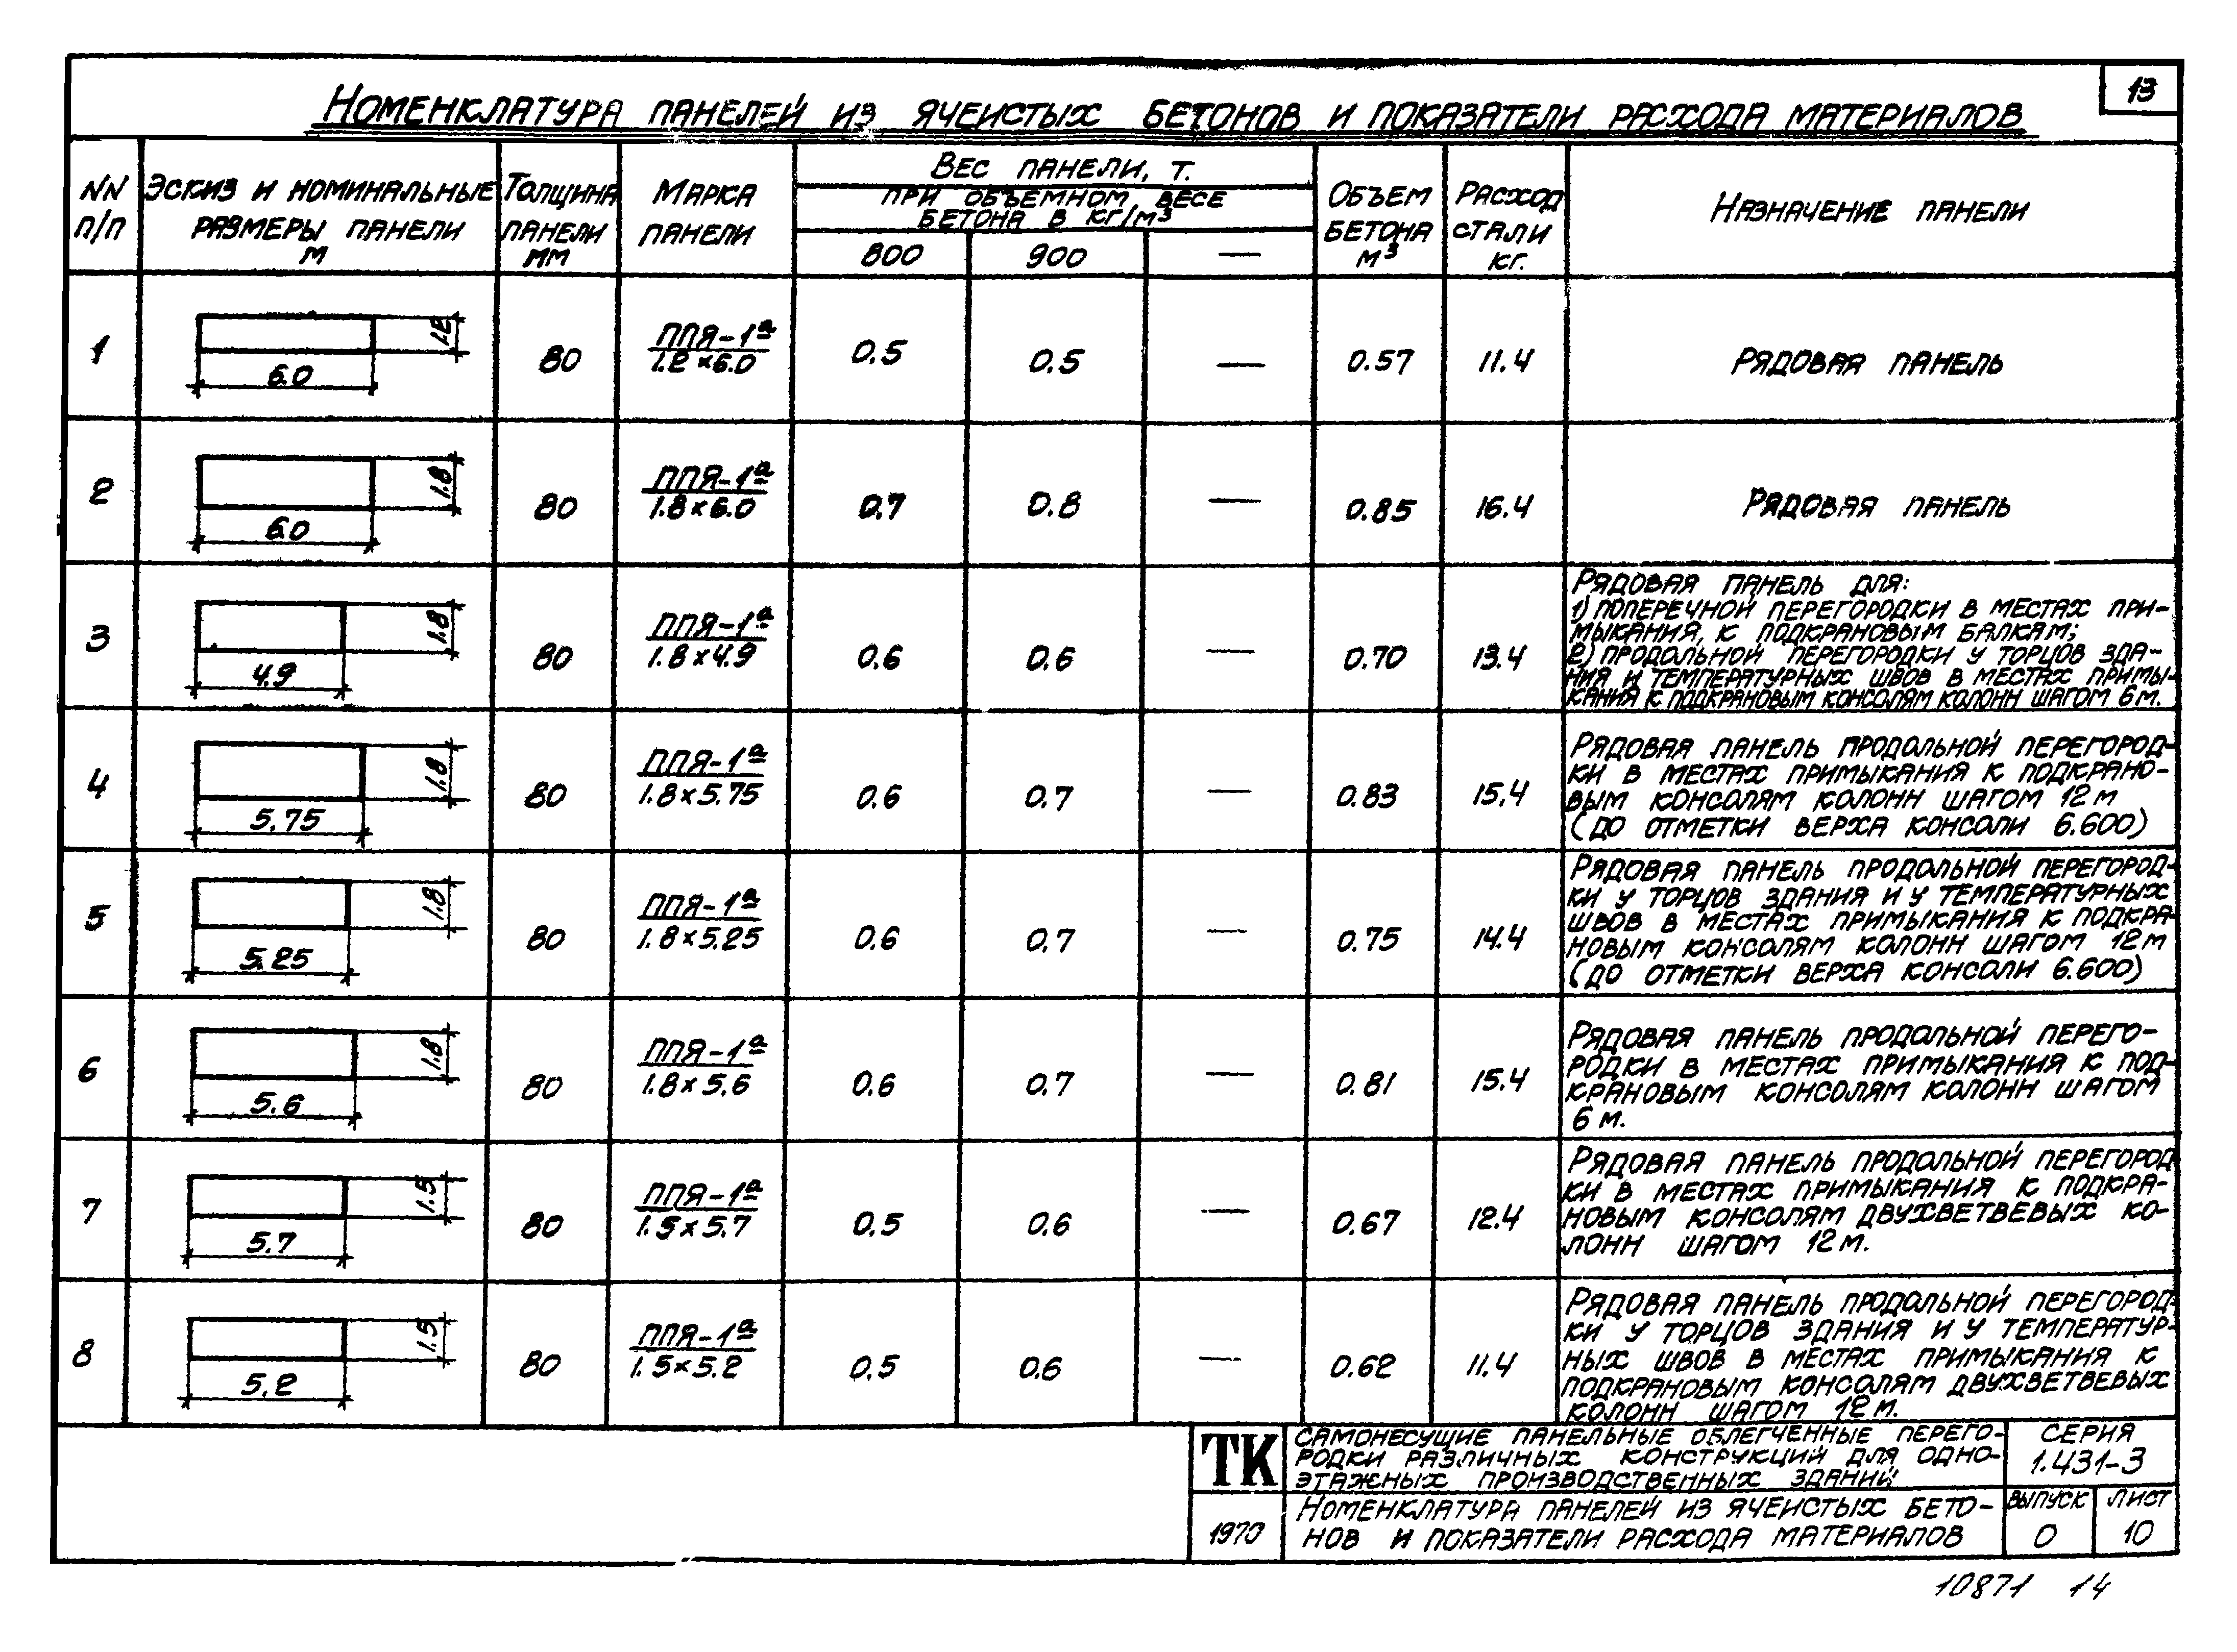 13
Номенклатура панелей из ячеистых бетонов и показатели расхода материалов
NN
п/п
Эскиз и номинальные
размеры панели
м
Толщина
панели
мм
Марка
панели
Вес панели, т.
при объемном весе
бетона в кг/м³
800
900
—
Объем
бетона
м³
Расход
стали
кг.
Назначение панели
1
1.2
6.0
80
ППЯ-1ª
1.2×6.0
0.5
0.5
—
0.57
11.4
Рядовая панель
2
1.8
6.0
80
ППЯ-1ª
1.8×6.0
0.7
0.8
—
0.85
16.4
Рядовая панель
3
1.8
4.9
80
ППЯ-1ª
1.8×4.9
0.6
0.6
—
0.70
13.4
Рядовая панель для:
1) поперечной перегородки в местах при-
мыкания, к подкрановым балкам;
2) продольной перегородки у торцов зда-
ния и температурных швов в местах примы-
кания к подкрановым консолям колонн шагом 6 м.
4
1.8
5.75
80
ППЯ-1ª
1.8×5.75
0.6
0.7
—
0.83
15.4
Рядовая панель продольной перегород-
ки в местах примыкания к подкрано-
вым консолям колонн шагом 12 м
(до отметки верха консоли 6.600)
5
1.8
5.25
80
ППЯ-1ª
1.8×5.25
0.6
0.7
—
0.75
14.4
Рядовая панель продольной перегород-
ки у торцов здания и у температурных
швов в местах примыкания к подкра-
новым консолям колонн шагом 12 м
(до отметки верха консоли 6.600)
6
1.8
5.6
80
ППЯ-1ª
1.8×5.6
0.6
0.7
—
0.81
15.4
Рядовая панель продольной перего-
родки в местах примыкания к под-
крановым консолям колонн шагом
6 м.
7
1.5
5.7
80
ППЯ-1ª
1.5×5.7
0.5
0.6
—
0.67
12.4
Рядовая панель продольной перегород
ки в местах примыкания к подкра-
новым консолям двухветвевых ко-
лонн шагом 12 м.
8
1.5
5.2
80
ППЯ-1ª
1.5×5.2
0.5
0.6
—
0.62
11.4
Рядовая панель продольной перегород-
ки у торцов здания и у температур-
ных швов в местах примыкания к
подкрановым консолям двухветвевых
колонн шагом 12 м.
ТК
1970
Самонесущие панельные облегченные перего-
родки различных конструкций для одно-
этажных производственных зданий
Серия
1.431-3
Номенклатура панелей из ячеистых бето-
нов и показатели расхода материалов
Выпуск
0
Лист
10
10871 14